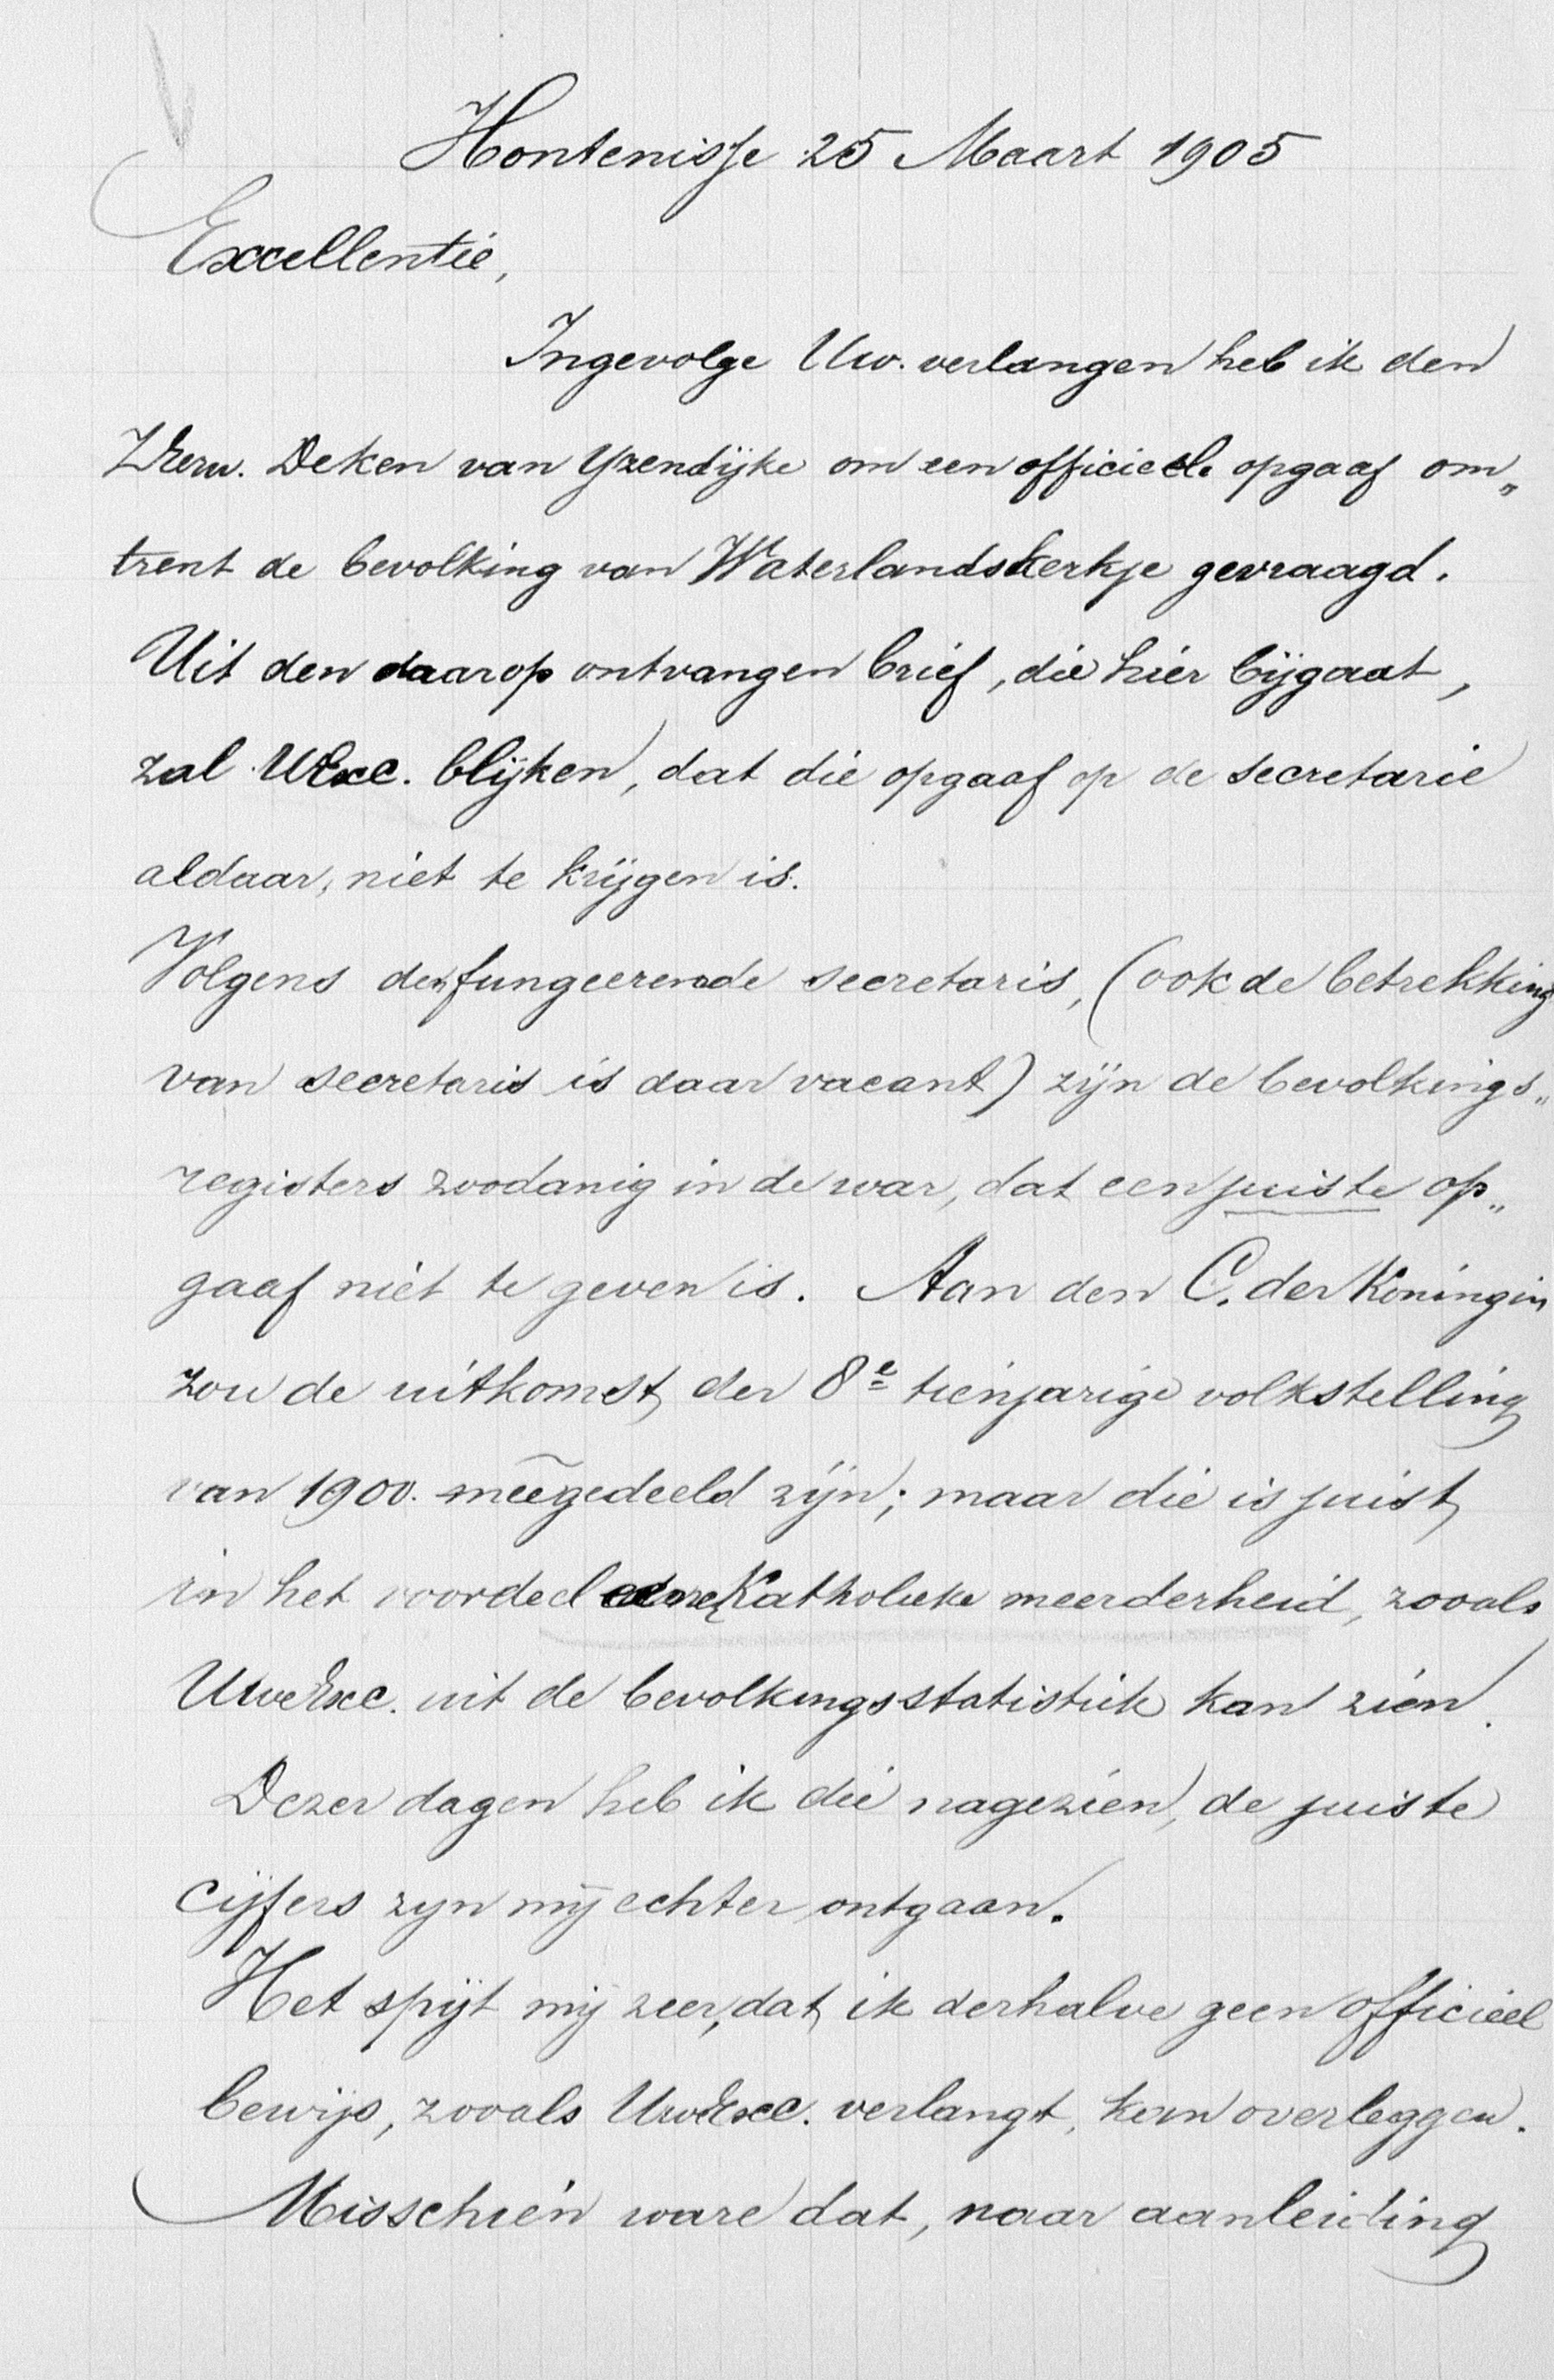 Hontenisse 25 Maart 1905
Excellentie,
Ingevolge Uw. verlangen heb ik den
ZEerw. Deken van Yzendijke om een officieele opgaaf om„
trent de bevolking van Waterlandskerkje gevraagd.
Uit den daarop ontvangen brief, die hier bijgaat,
zal UExc. blijken, dat die opgaaf op de secretarie
aldaar, niet te krijgen is.
Volgens den fungeerende secretaris, (ook de betrekking
van secretaris is daar vacant) zijn de bevolkings„
registers zoodanig in de war, dat een juiste op„
gaaf niet te geven is. Aan den C. der Koningin
zou de uitkomst der 8e tienjarige volkstelling
van 1900. meegedeeld zijn; maar die is juist
in het voordeel eener Katholieke meerderheid, zooals
UweExc. uit de bevolkingsstatistiek kan zien.
Dezer dagen heb ik die nagezien, de juiste
cijfers zyn mij echter ontgaan.
Het spijt mij zeer, dat ik derhalve geen officieel
bewijs, zooals UweExc. verlangt, kan overleggen.
Misschien ware dat, naar aanleiding